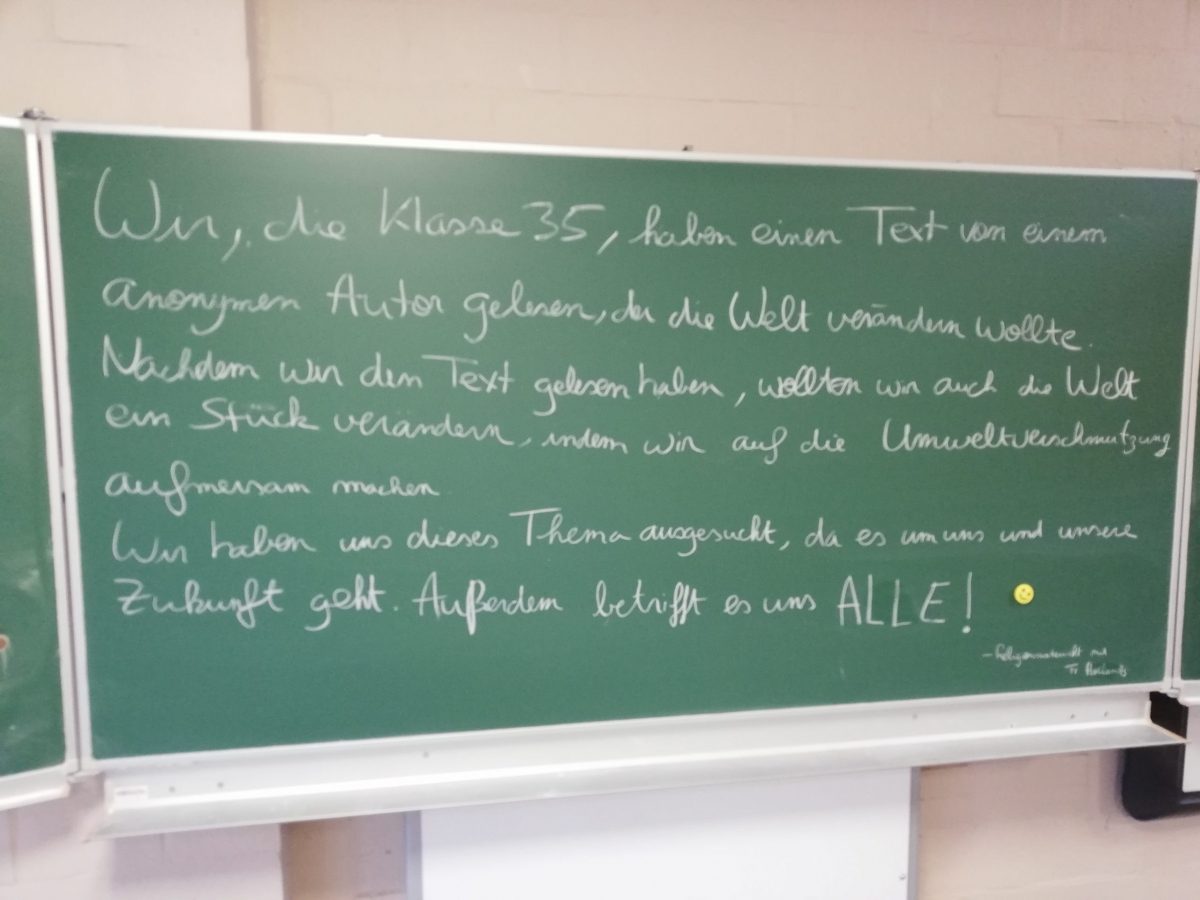 Wir, die Klasse 35, haben einen Text von einem
anonymen Autor gelesen, der die Welt verändern wollte.
Nachdem wir den Text gelesen haben, wollten wir auch die Welt
ein Stück verändern, indem wir auf die Umweltverschmutzung
aufmersam machen
Wir haben uns dieses Thema ausgesucht, da es um uns und unsere
Zukunft geht. Außerdem betrifft es uns ALLE!
- Religionsunterricht mit
Fr